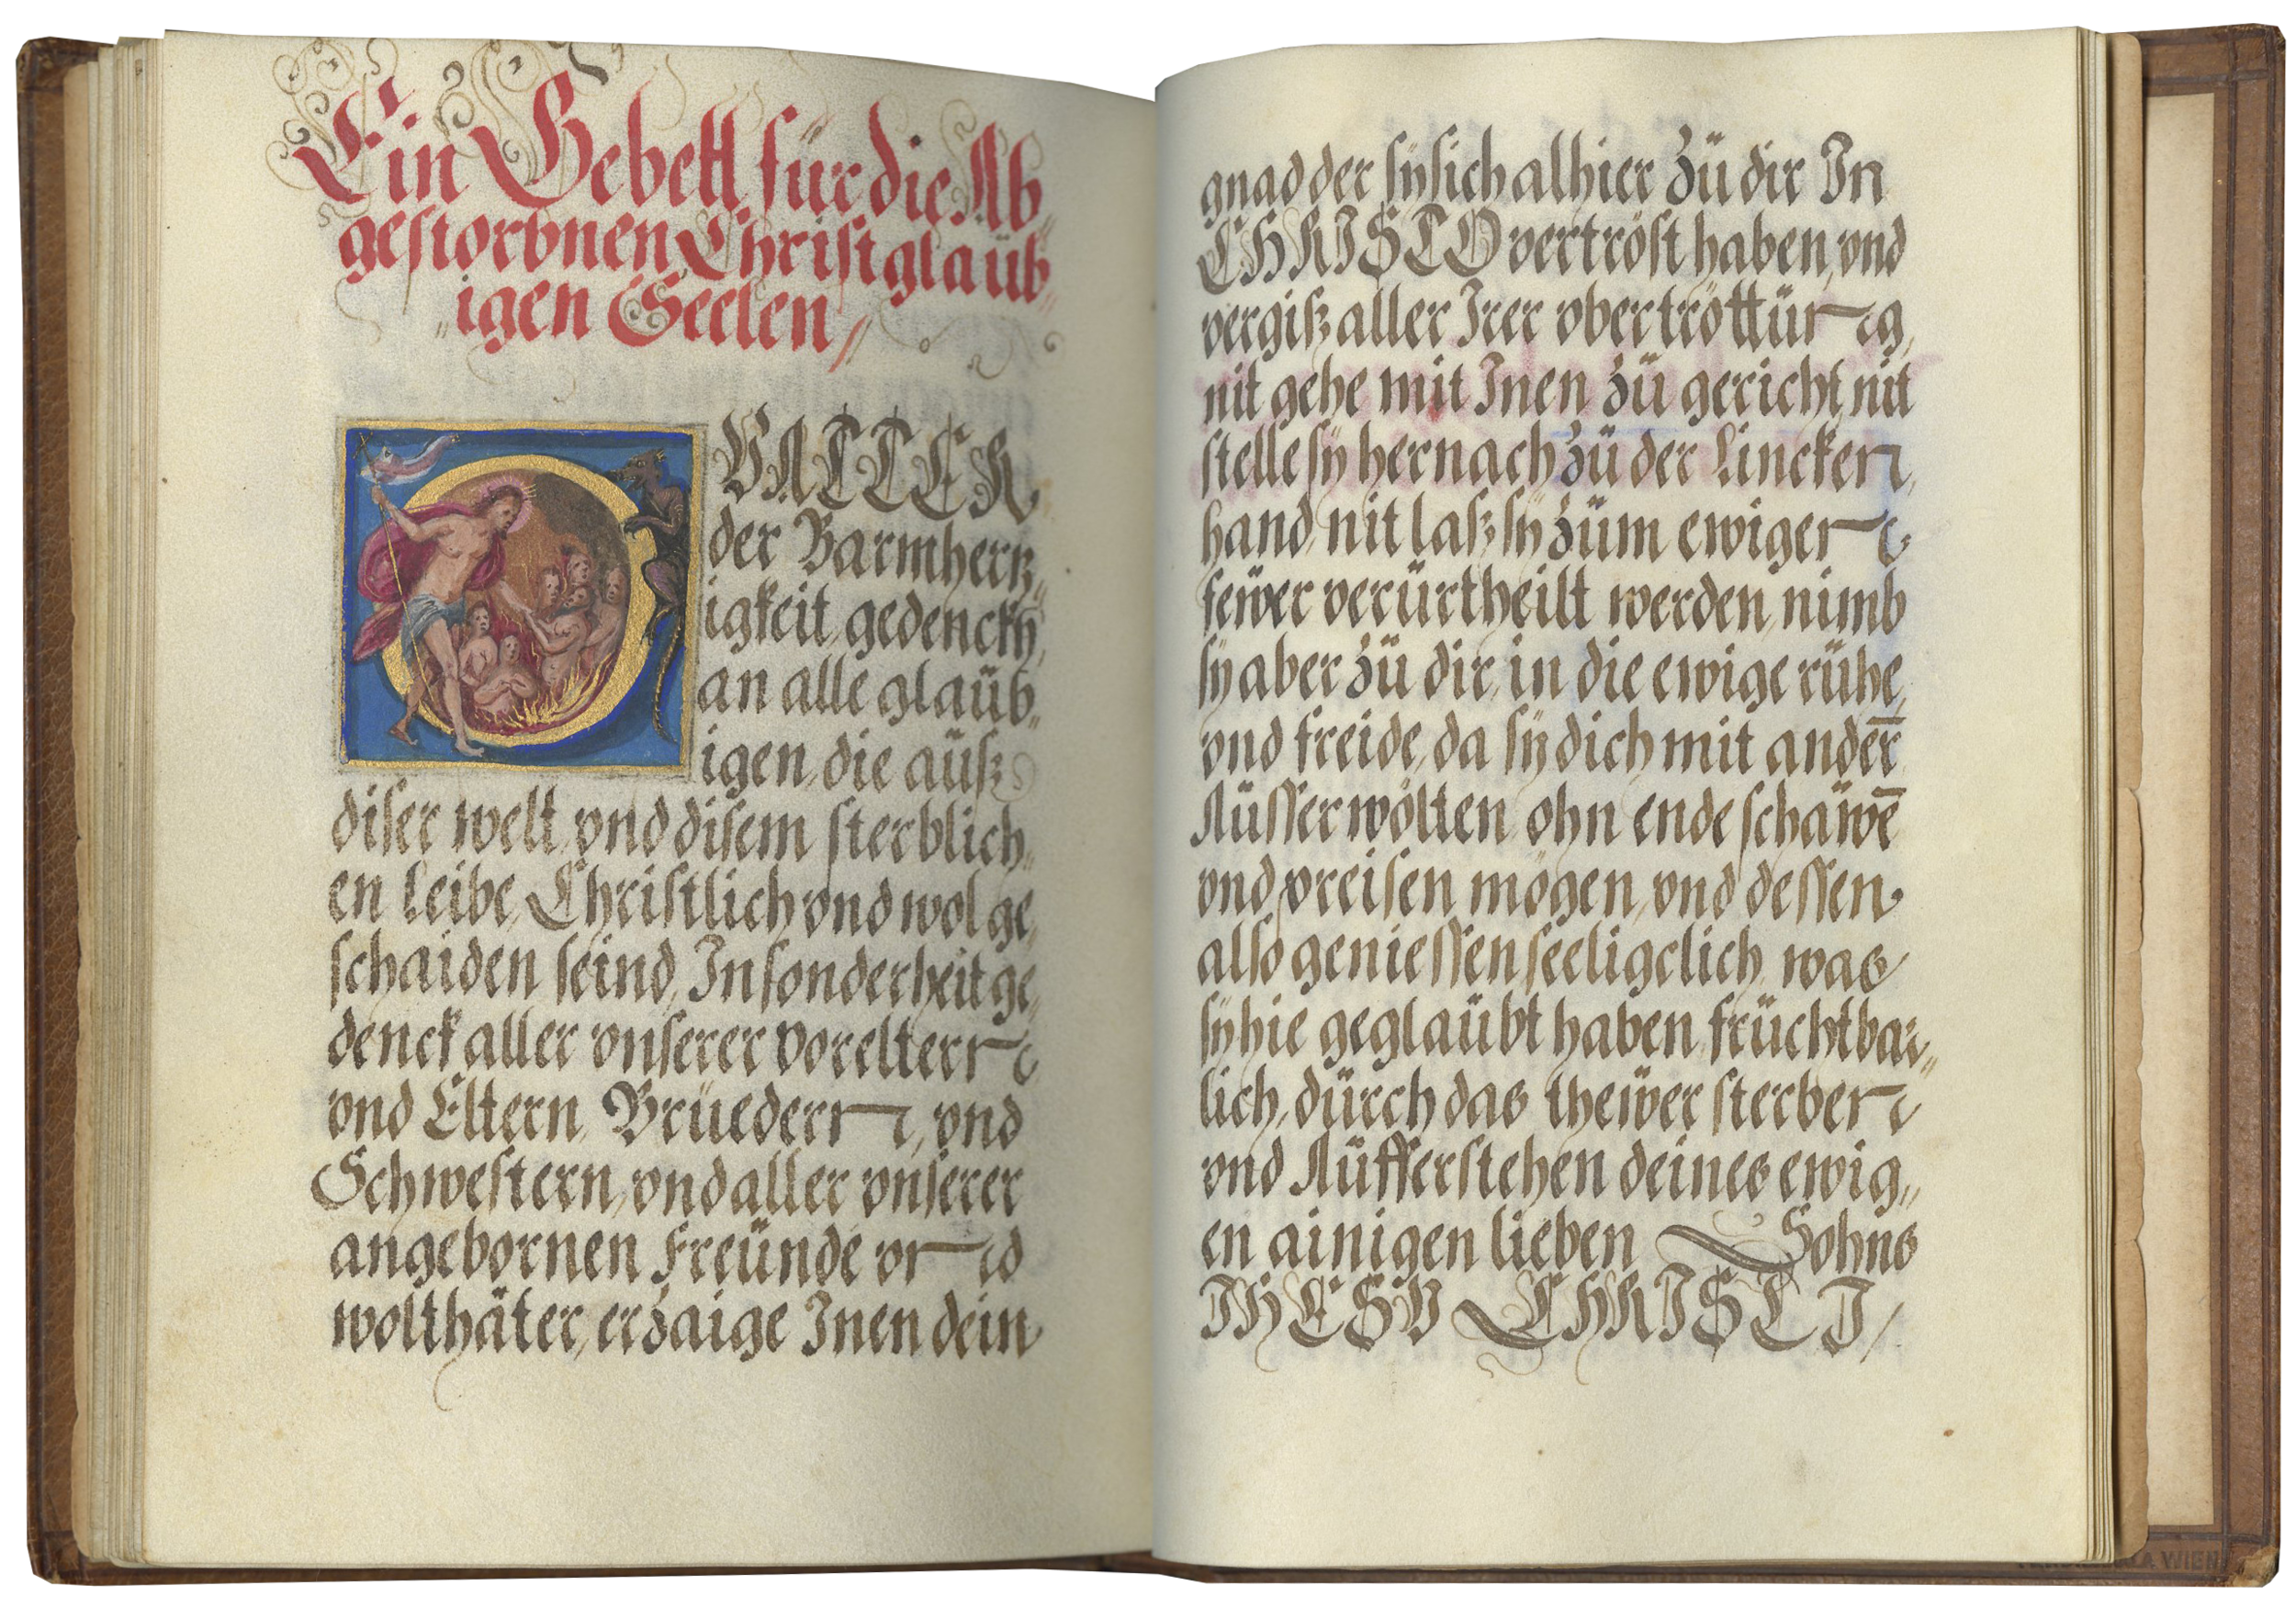 Ein Gebett für die Ab„
gestorbnen Christglaüb„
„igen Seelen /
O VATTER
der Barmhertz„
igkeit, gedenckh,
an alle glaüb„
igen, die aüß
diser welt, vnd disem sterblich„
en Leibe, Christlich vnd wol ge„
schaiden seind, Insonderheit ge„
denck aller vnserer Voreltern
vnd Eltern, Brüedern, vnd
Schwestern, vnd aller vnserer
angebornen Freünde vnd
wolthäter, erzaige Inen dein
gnad der sÿ sich alhier zü dir In
CHRISTO vertröst haben, vnd
vergiß aller Irer vbertrettüng,
nit gehe mit Inen zü gericht, nit
stelle sÿ hernach zü der Lincken,
hand, nit laß sÿ züm ewigen
feẅer verürtheilt werden, nimb
sÿ aber zü dir, in die ewige rühe,
vnd freide, da sÿ dich mit andern̄
Aüsserwölten, ohn ende schaẅē
vnd preisen mögen, vnd dessen
also geniessen seeligclich, was
sÿ hie geglaübt haben, früchtbar„
lich, dürch das theẅer sterben
vnd Aüfferstehen deines ewig„
en ainigen lieben Sohns
IHESV CHRISTI /
WIEN